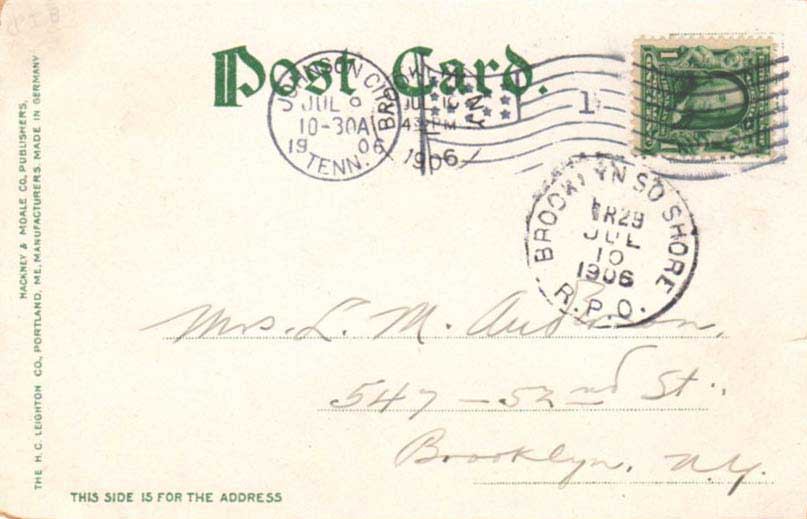 Post Card.
JOHNSON CITY
JUL 8
10-30A
19 06
TENN.
BROOKLYN, N.Y.
JUL 10
4 PM
1906
1
1
BROOKLYN SO SHORE
TR29
JUL
10
1906
R.P.O.
Mrs. L. M. Anderson,
547 - 52nd St.,
Brooklyn, N.Y.
THIS SIDE IS FOR THE ADDRESS
HACKNEY & MOALE CO., PUBLISHERS,
THE H. C. LEIGHTON CO., PORTLAND, ME. MANUFACTURERS. MADE IN GERMANY